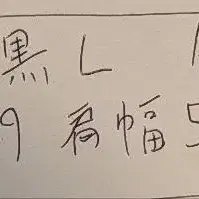 黒 L
9 肩幅 5